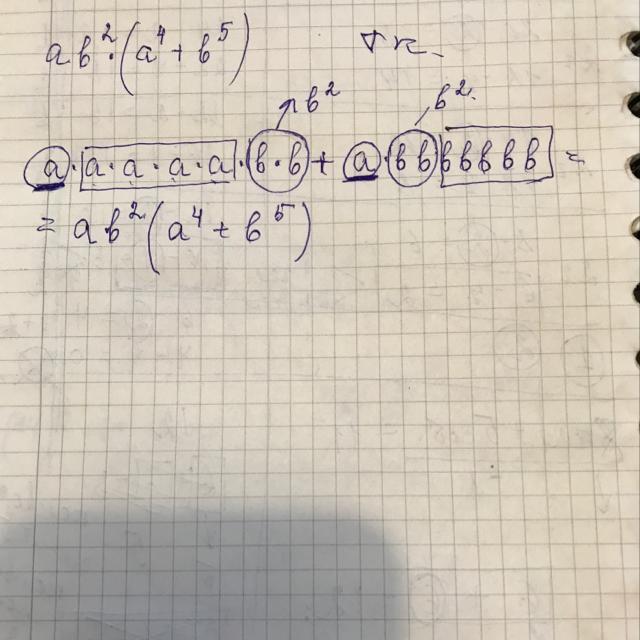 ab²·(a⁴+b⁵) т.к.
b² b²
a·a·a·a·a·b·b+a·bbbbbbb=
=ab²(a⁴+b⁵)